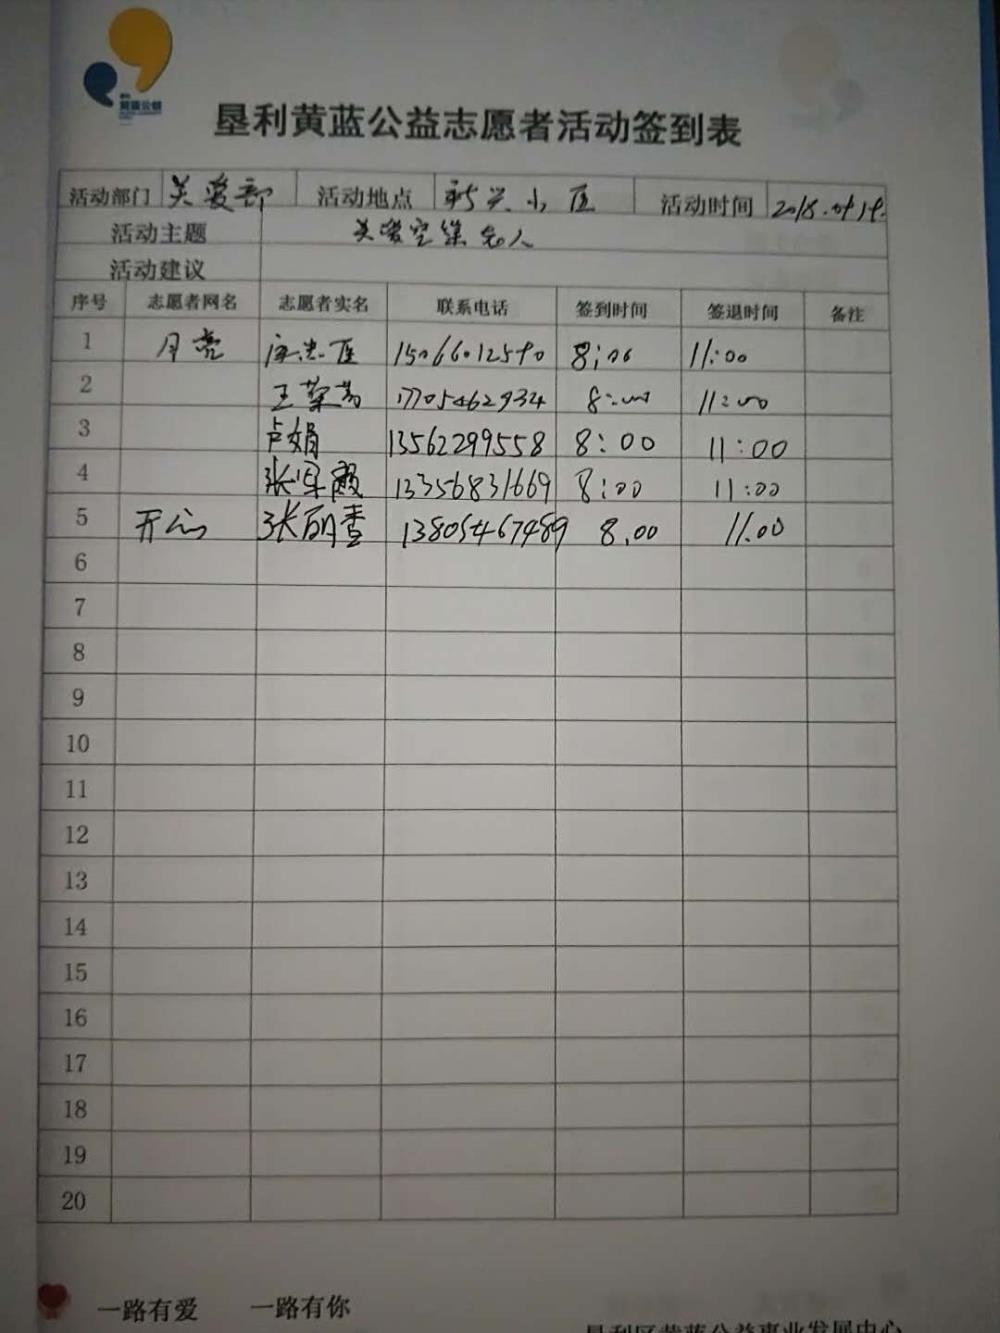 黄蓝公益
垦利黄蓝公益志愿者活动签到表
活动部门 关爱部 活动地点 新兴小区 活动时间 2018.
活动主题 关爱空巢老人
活动建议
序号 志愿者网名 志愿者实名 联系电话 签到时间 签退时间 备注
1 月亮 15066012590 8:00 11:00
2 王 17705462934 8:00 11:00
3 卢娟 13562299558 8:00 11:00
4 张 霞 13356831669 8:00 11:00
5 开心 张丽香 13805467489 8.00 11.00
6
7
8
9
10
11
12
13
14
15
16
17
18
19
20
一路有爱 一路有你
垦利区黄蓝公益事业发展中心